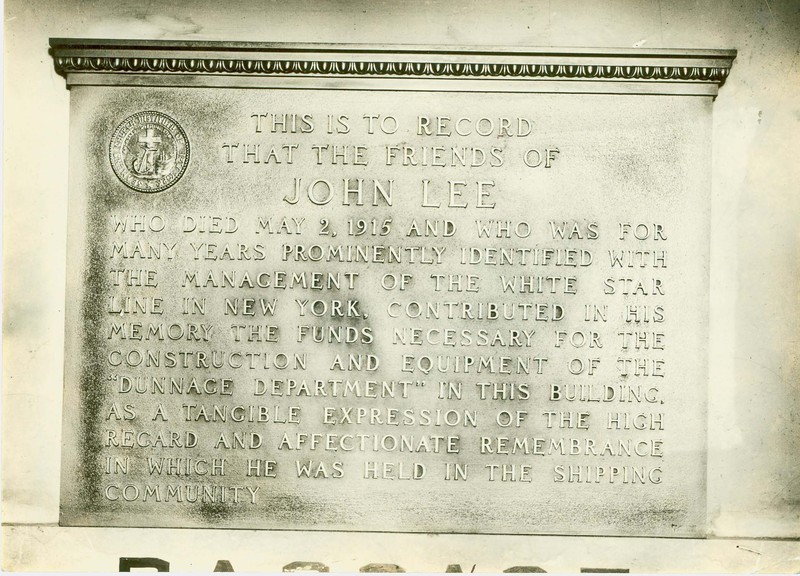 THIS IS TO RECORD
THAT THE FRIENDS OF
JOHN LEE
WHO DIED MAY 2, 1915 AND WHO WAS FOR
MANY YEARS PROMINENTLY IDENTIFIED WITH
THE MANAGEMENT OF THE WHITE STAR
LINE IN NEW YORK, CONTRIBUTED IN HIS
MEMORY THE FUNDS NECESSARY FOR THE
CONSTRUCTION AND EQUIPMENT OF THE
"DUNNAGE DEPARTMENT" IN THIS BUILDING,
AS A TANGIBLE EXPRESSION OF THE HIGH
REGARD AND AFFECTIONATE REMEMBRANCE
IN WHICH HE WAS HELD IN THE SHIPPING
COMMUNITY